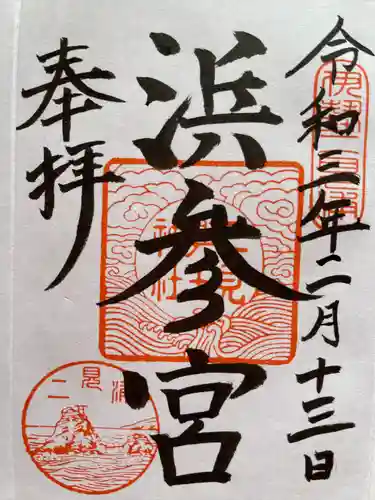 令和三年二月十三日
浜参宮
奉拝
二見興玉神社
二見浦